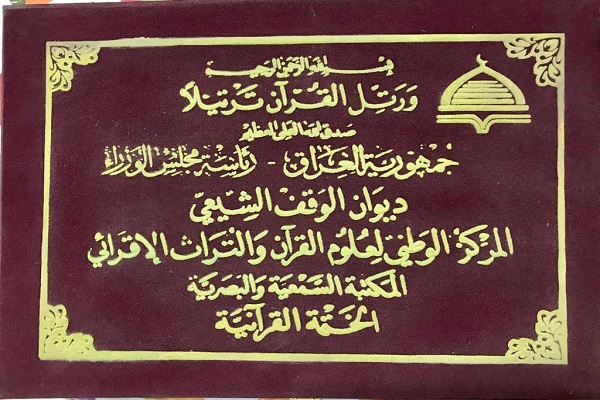 بسم الله الرحمن الرحيم
وَرَتِّلِ القُرآنَ تَرْتيلاً
صدق الله العلي العظيم
جمهورية العراق - رئاسة مجلس الوزراء
ديوان الوقف الشيعي
المركز الوطني لعلوم القرآن والتراث الإقرائي
المكتبة السمعية والبصرية
الختمة القرآنية